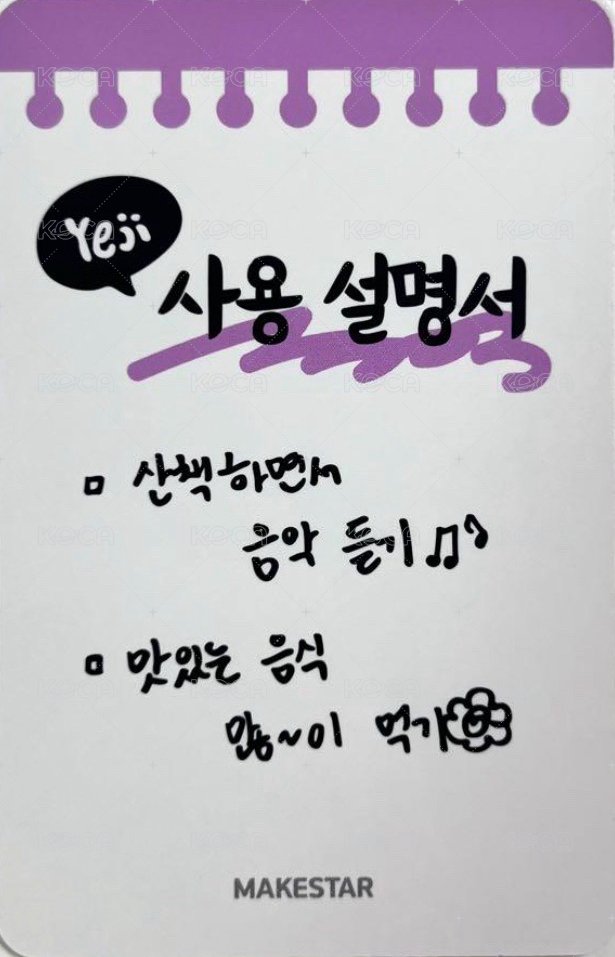 Yeji
사용 설명서
▫ 산책하면서
음악 듣기♫♪
▫ 맛있는 음식
많~이 먹기
MAKESTAR